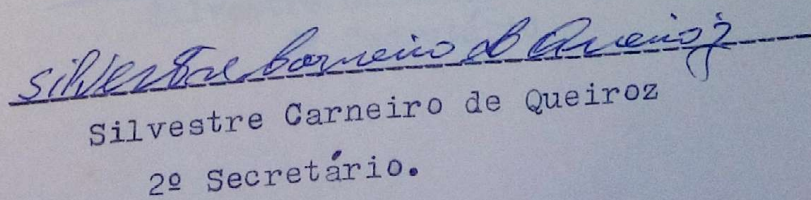 Silvestre Carneiro de Queiroz
Silvestre Carneiro de Queiroz
2º Secretário.